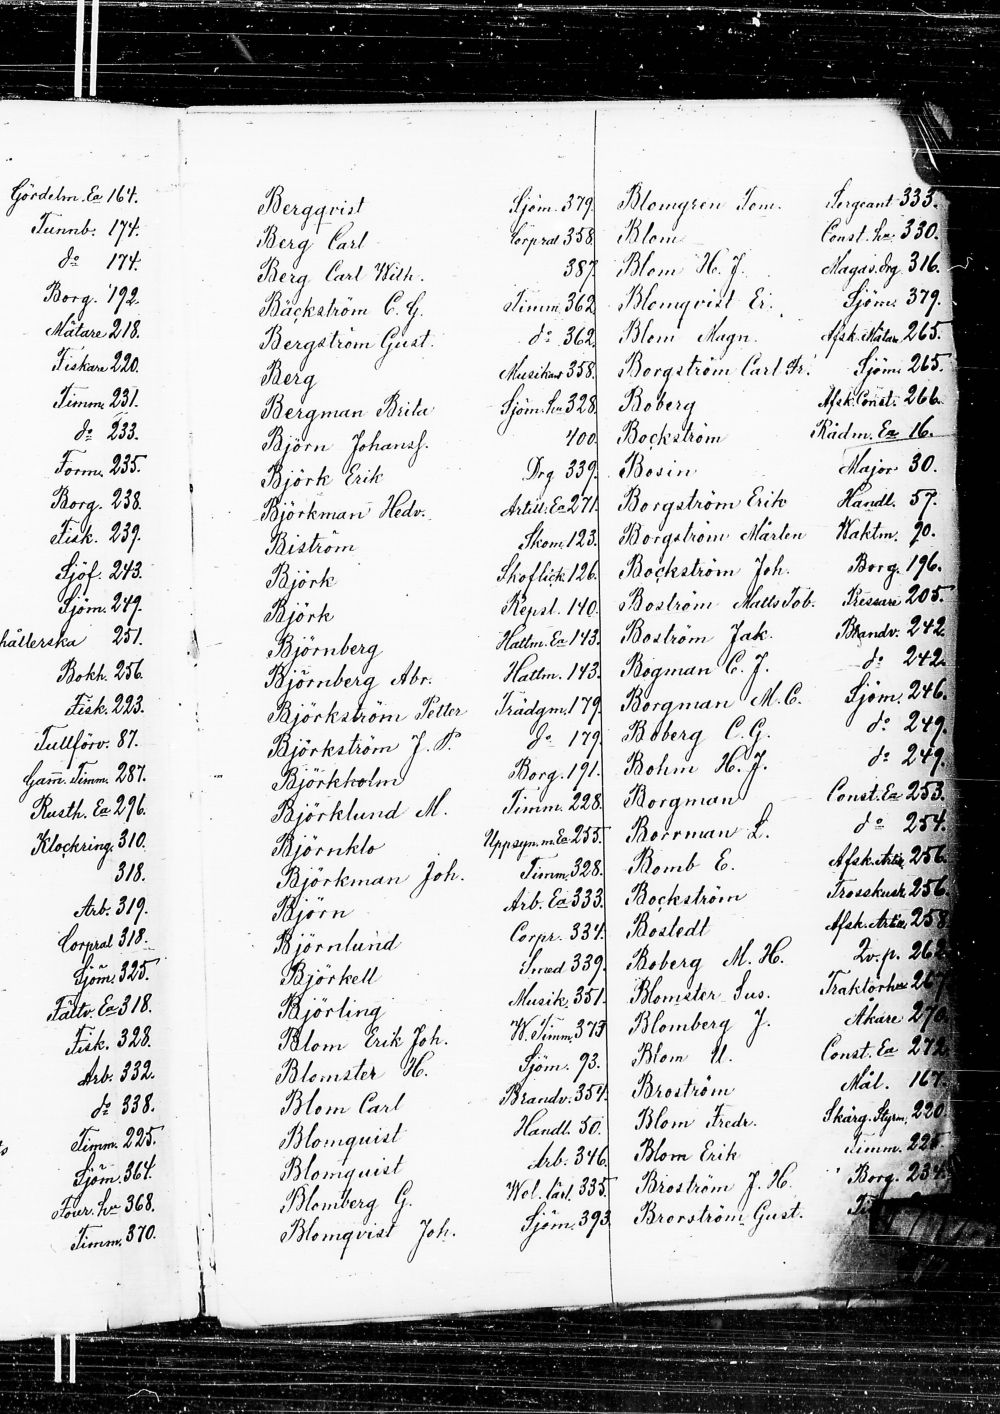 Gördelm. Ea 164.
Tunnb. 174.
do 174.
Borg. 192.
Mätare 218.
Fiskare 220.
Timm. 231.
do 233.
Form. 235.
Borg. 238.
Fisk. 239.
Sjöf. 243.
Sjöm. 249.
hållerska 251.
Bokh. 256.
Fisk. 223.
Tullförv. 87.
Gam. Timm. 287.
Rusth. Ea 296.
Klockring. 310.
318.
Arb. 319.
Corpral 318.
Sjöm. 325.
Fältv. Ea 318.
Fisk. 328.
Arb. 332.
do 338.
Timm. 225.
Sjöm. 364.
Four. hu 368.
Timm. 370.
Bergqvist Sjöm. 379.
Berg Carl Corpral 358.
Berg Carl Wilh. 387.
Bäckström C. G. Timm. 362
Bergström Gust. do 362
Berg Musikant 358.
Bergman Brita Sjöm. hu 328.
Björn Johansf. 400.
Björk Erik Drg 339.
Björkman Hedv. Artill. Ea 271.
Biström Skom. 123.
Björk Skoflick. 126.
Björk Repsl. 140.
Björnberg Hattm. Ea 143.
Björnberg Abr. Hattm. 143.
Björkström Petter Trädgm. 179.
Björkström J. P. do 179.
Björkholm Borg. 191.
Björklund M. Timm. 228.
Björnklo Uppsyn. m. Ea 255.
Björkman Joh. Timm. 328.
Björn Arb. Ea 333.
Björnlund Corpr. 334.
Björkell Smed 339.
Björling Musik. 351.
Blom Erik Joh. W. Timm. 373
Blomster H. Sjöm. 93.
Blom Carl Brandv. 354.
Blomquist Handl. 50.
Blomquist Arb. 346.
Blomberg G. Vol. lärl. 335.
Blomqvist Joh. Sjöm. 393.
Blomgren Tom. Sergeant 333.
Blom Const. hu 330.
Blom H. J. Magas. drg 316.
Blomqvist Er. Sjöm. 379.
Blom Magn. Afsk. Mätare 265.
Borgström Carl Fr. Sjöm. 265.
Boberg Afsk. Const. 266.
Bockström Rådm. Ea 16.
Bosin Major 30.
Borgström Erik Handl. 57.
Borgström Mårten Waktm. 90.
Bockström Joh. Borg. 196.
Boström Matts Tob. Pressare 205.
Boström Jak. Brandv. 242.
Bogman C. J. do 242.
Borgman M. C. Sjöm. 246.
Boberg C. G. do 249.
Bohm H. J. do 249.
Borgman Const. Ea 253.
Borrman L. do 254.
Bomb E. Afsk. Artill. 256.
Bockström Trosskusk 256.
Bostedt Afsk. Artill. 258
Boberg M. H. Qv. p. 262
Blomster Sus. Traktörhu 267
Blomberg J. Åkare 270.
Blom U. Const. Ea 272
Broström Mål. 167.
Blom Fredr. Skärg. Styrm. 220
Blom Erik Timm. 225.
Broström J. H. Borg. 234.
Brorström Gust.